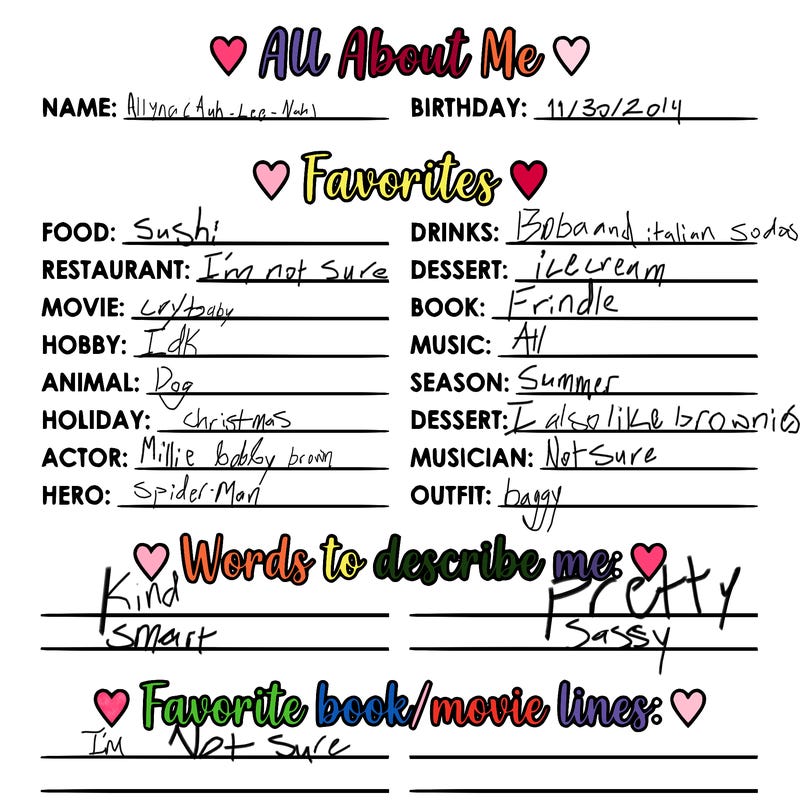 All About Me
NAME: Allyna (Auh-Lee-Nah)
BIRTHDAY: 11/30/2014
Favorites
FOOD: Sushi
DRINKS: Boba and italian sodas
RESTAURANT: I'm not sure
DESSERT: icecream
MOVIE: crybaby
BOOK: Frindle
HOBBY: Idk
MUSIC: All
ANIMAL: Dog
SEASON: Summer
HOLIDAY: christmas
DESSERT: I also like brownies
ACTOR: Millie bobby brown
MUSICIAN: Not Sure
HERO: Spider-Man
OUTFIT: baggy
Words to describe me:
Kind
Pretty
Smart
Sassy
Favorite book/movie lines:
I'm Not Sure